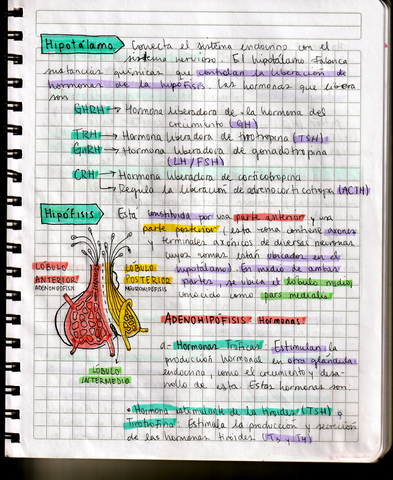 Hipotálamo Conecta el sistema endocrino con el
sistema nervioso. El hipotálamo fabrica
sustancias químicas que controlan la liberación de
hormonas de la hipófisis. Las hormonas que libera
son
GHRH → Hormona liberadora de la hormona del
crecimiento (GH)
TRH → Hormona liberadora de tirotropina (TSH)
GnRH → Hormona liberadora de gonadotropina
(LH/FSH)
CRH → Hormona liberadora de corticotropina
Regula la liberación de adrenocorticotropa (ACTH)
Hipófisis Está constituida por una parte anterior y una
parte posterior (esta zona contiene axones
y terminales axónicos de diversas neuronas
cuyos somas están ubicados en el
hipotálamo). En medio de ambas
partes se ubica el lóbulo medio,
conocido como pars medialis
LÓBULO
ANTERIOR
ADENOHIPÓFISIS
LÓBULO
POSTERIOR
NEUROHIPÓFISIS
LÓBULO
INTERMEDIO
ADENOHIPÓFISIS: Hormonas
a- Hormonas Tróficas: Estimulan la
producción hormonal en otra glándula
endocrina, como el crecimiento y desa-
rrollo de esta. Estas hormonas son
• Hormona estimulante de la tiroides (TSH) o
Tirotrofina: Estimula la producción y secreción
de las hormonas tiroides (T3 y T4)